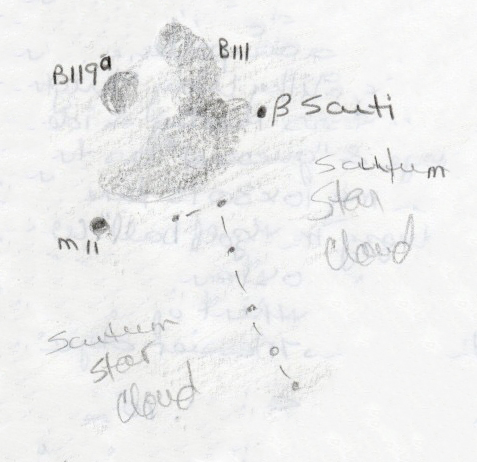 B111
B119a
β Scuti
Scutum
Star
Cloud
m11
Scutum
Star
Cloud